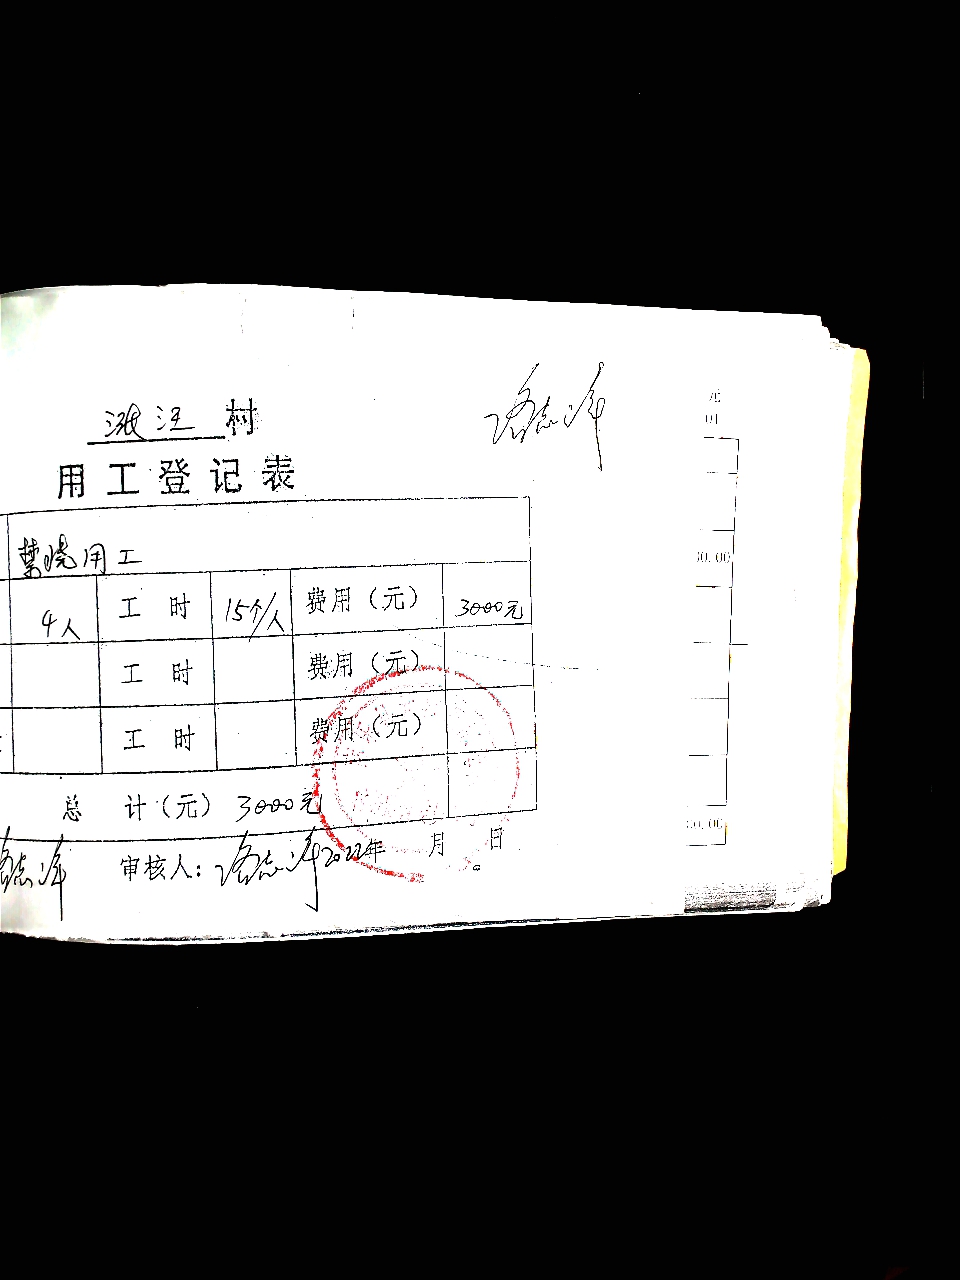 涨汪村
用工登记表
禁烧用工
4人 工时 15个/人 费用(元) 3000元
工时 费用(元)
工时 费用(元)
总计(元) 3000元
审核人: 2022年 月 日
元
01
00.00